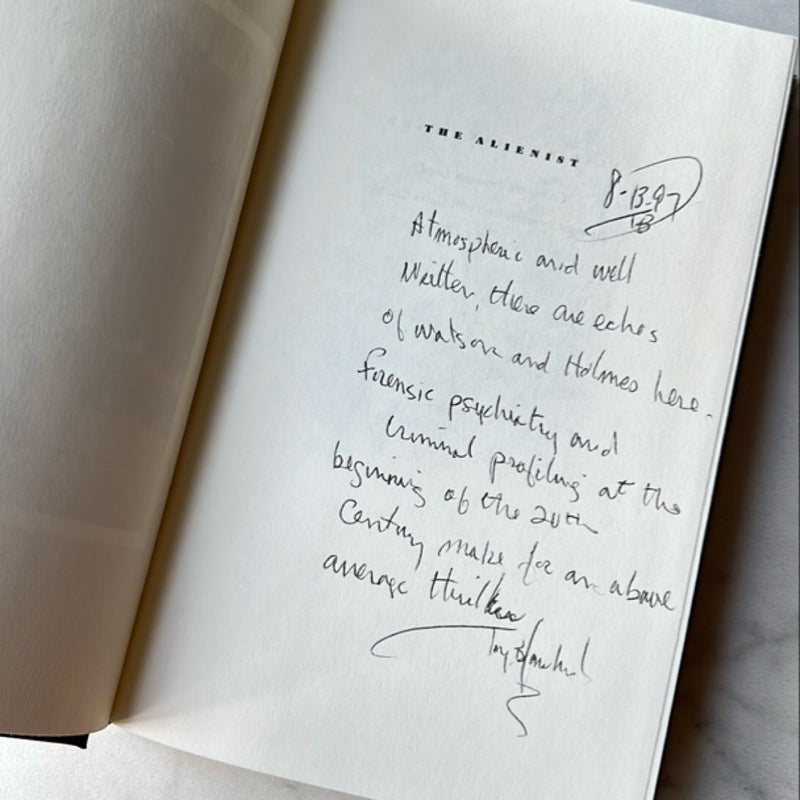 THE ALIENIST
8-13-97
Atmospheric and well
Written, there are echos
of Watson and Holmes here.
Forensic psychiatry and
Criminal profiling at the
beginning of the 20th
Century make for an above
average thriller